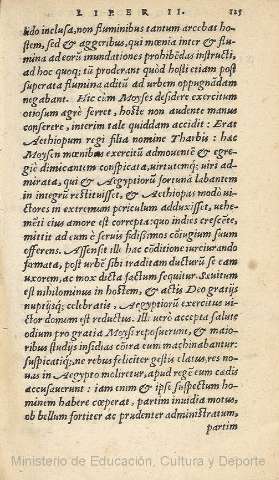 LIBER II. 125
sido inclusa, non fluminibus tantum arcebat ho-
stem, sed & aggeribus, qui mœnia inter & flu-
mina ad eorũ inundationes prohibẽdas instructi,
ad hoc quoq; tũ proderant quòd hosti etiam post
superata flumina aditũ ad urbem oppugnãdam
negabant. Hic cùm Moyses desidere exercitum
otiosum agrè ferret, hoste non audente manus
conserere, interim tale quiddam accidit: Erat
Aethiopum regi filia nomine Tharbis: hæc
Moysen mœnibus exercitũ admouentẽ & egre-
giè dimicantem conspicata, uirtutemq; uiri ad-
mirata, qui & Aegyptiorũ fortunã labantem
in integrũ restituisset, & Aethiopas modò ui-
ctores in extremum periculum adduxisset, uehe-
mẽti eius amore est correpta: quo indies crescẽte,
mittit ad eum è seruis fidissimos cõiugium suum
offerens. Assensit ille hac cõditione iureiurando
firmata, post urbẽ sibi traditam ducturũ se eam
uxorem, ac mox dicta factum sequitur. Sæuitum
est nihilominus in hostem, & actis Deo gratijs
nuptijsq; celebratis, Aegyptiorũ exercitus ui-
ctor domum est reductus. Illi uerò accepta salute
odium pro gratia Moysi reposuerunt, & maio-
ribus studijs insidias cõtra eum machinabantur:
suspicatiq;, ne rebus feliciter gestis elatus, res no-
uas in Aegypto moliretur, apud regem eũ cædis
accusauerunt: iam enim & ipse suspectum ho-
minem habere cœperat, partim inuidia motus,
ob bellum fortiter ac prudenter administratum,
partim
Ministerio de Educación, Cultura y Deporte